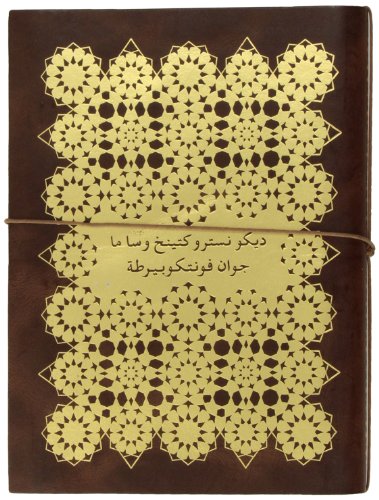 ديكو نستروكتينخ وساما
جوان فونتكوبيرطة